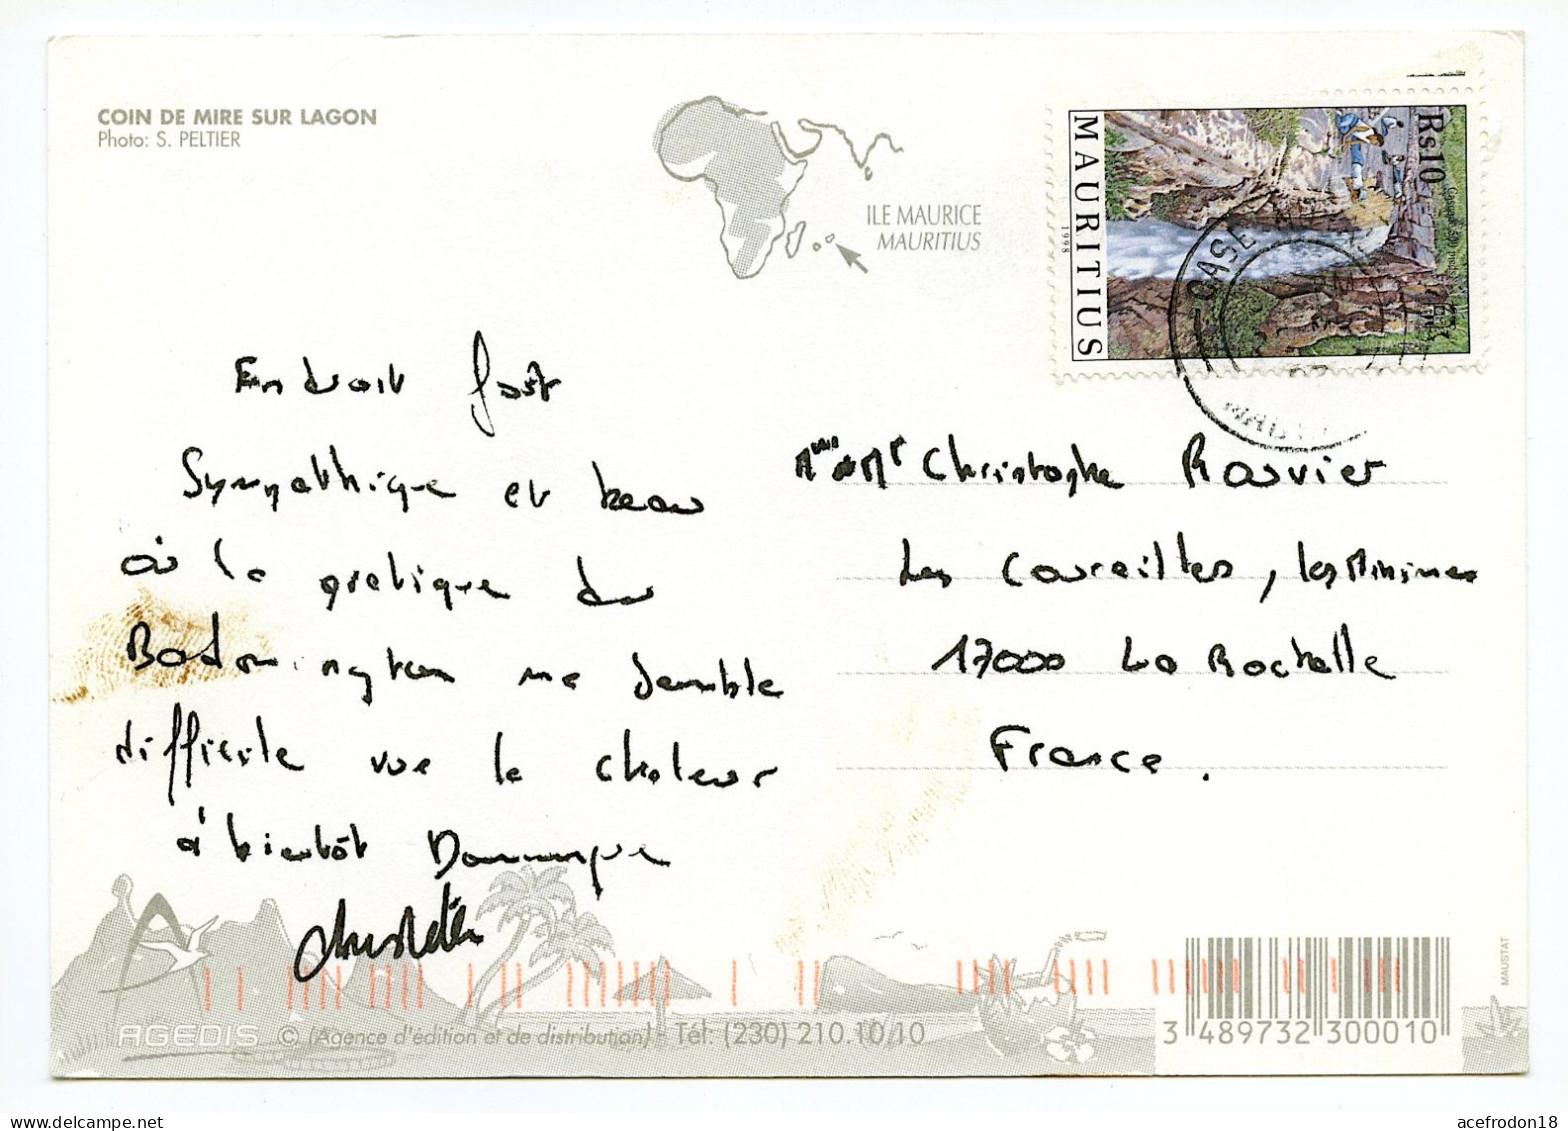 COIN DE MIRE SUR LAGON
Photo: S. PELTIER
ILE MAURICE
MAURITIUS
Rs10
MAURITIUS
1998
CASE
Endroit fort
Sympathique et beau
où la pratique du
Badmington me semble
difficile vue la chaleur
à bientôt Dominique
Mme & Mr Christophe
Les Coureilles, les Minimes
17000 La Rochelle
France.
AGEDIS © (Agence d'édition et de distribution) - Tél: (230) 210.10.10
3 489732 300010
MAUSTAT
acefrodon18